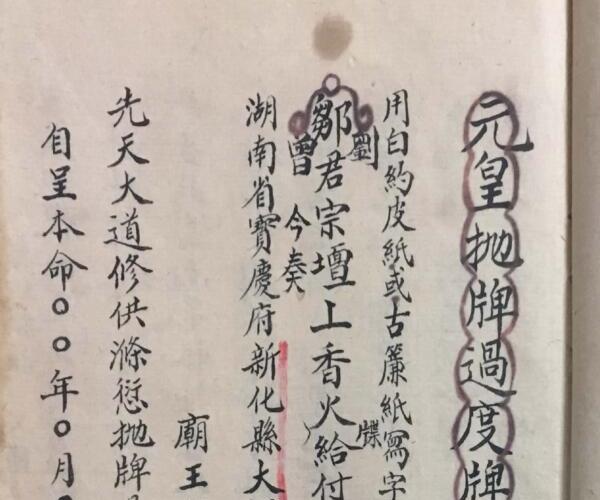 元皇抛牌過度牌
用白約皮紙或古簾紙寫字
劉
鄒君宗壇上香火給付
曾
今奏
牒
湖南省寶慶府新化縣大
廟王
先天大道修供滌愆抛牌
自呈本命○○年○月